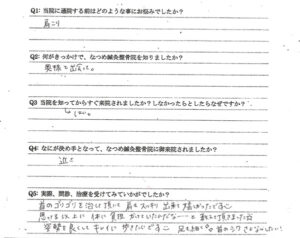 Q1: 当院に通院する前はどのような事にお悩みでしたか？
肩こり
Q2: 何がきっかけで、なつめ鍼灸整骨院を知りましたか？
奥様と出会って。
Q3 当院を知ってからすぐ来院されましたか？しなかったらとしたらなぜですか？
はい。
Q4: なにが決め手となって、なつめ鍼灸整骨院に御来院されましたか？
近さ
Q5: 実際、問診、治療を受けてみていかがでしたか？
首のゴリゴリを治して頂いて 肩もスッキリ 出来て 嬉しかったです
思ってる以上に 体に負担 かけていたかなー と 教えて頂きました
姿勢を良くして キレイに 歩きたいです 足も細く